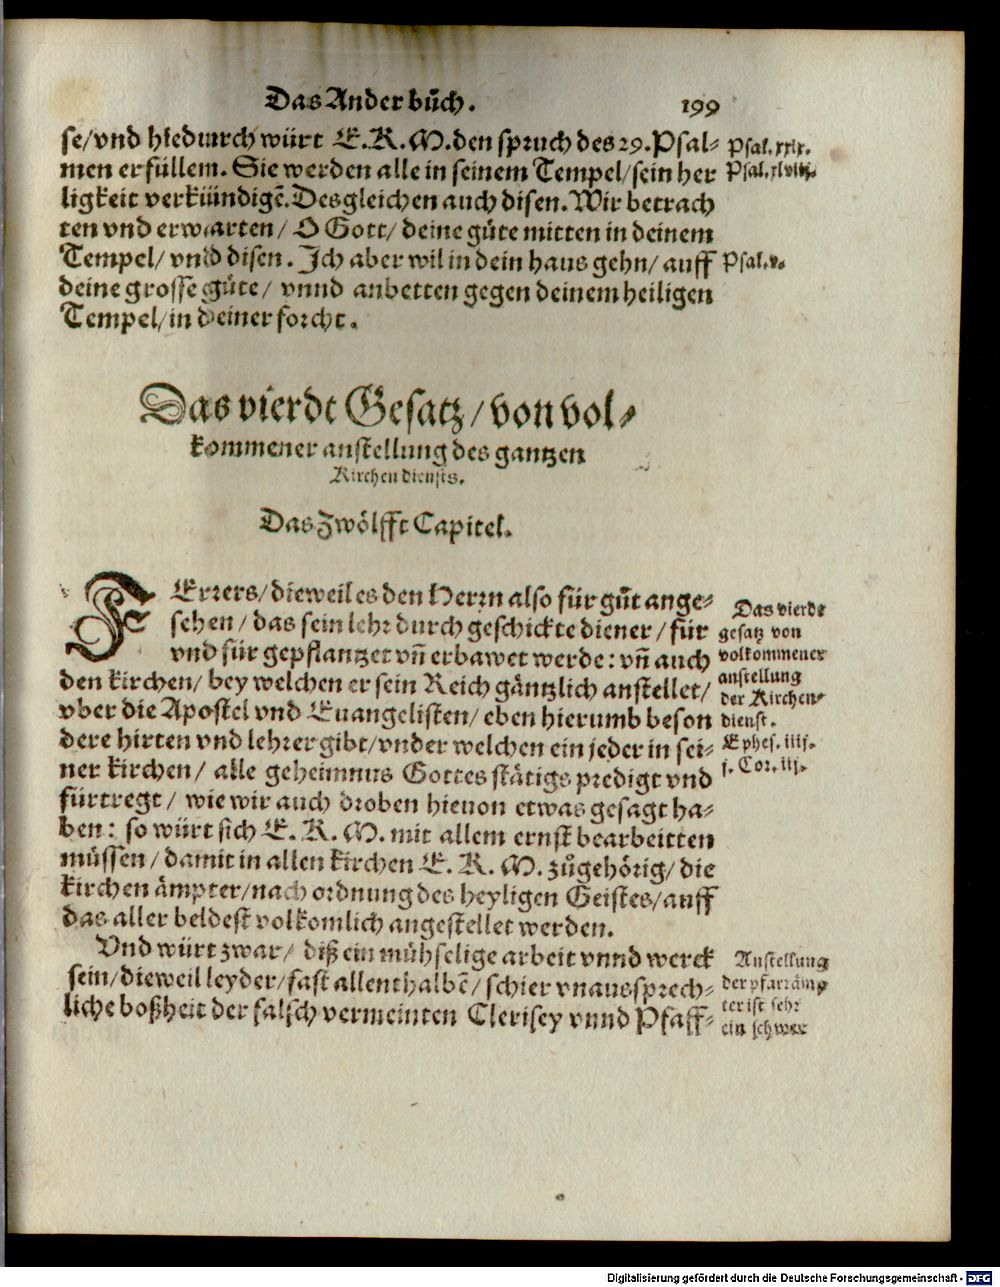 Das Ander bůch. 199
se/vnd hiedurch würt E.K.M.den spruch des 29.Psal-
men erfüllem. Sie werden alle in seinem Tempel/sein her
ligkeit verkiündigē. Desgleichen auch disen. Wir betrach
ten vnd erwarten/ O Gott/ deine güte mitten in deinem
Tempel/ vnd disen. Ich aber wil in dein haus gehn/ auff
deine grosse güte/ vnnd anbetten gegen deinem heiligen
Tempel/in deiner forcht.
Psal. xxix.
Psal. xlviij.
Psal. v.
Das vierdt Gesatz/von vol-
kommener anstellung des gantzen
Kirchen diensts.
Das Zwölfft Capitel.
FErrers/dieweil es den Herrn also für gůt ange-
sehen/ das sein lehr durch geschickte diener/ für
vnd für gepflantzet vñ erbawet werde: vñ auch
den kirchen/ bey welchen er sein Reich gäntzlich anstellet/
vber die Apostel vnd Euangelisten/ eben hierumb beson
dere hirten vnd lehrer gibt/vnder welchen ein jeder in sei-
ner kirchen/ alle geheimnus Gottes stätigs predigt vnd
fürtregt/ wie wir auch droben hieuon etwas gesagt ha-
ben: so würt sich E. K. M. mit allem ernst bearbeitten
müssen/damit in allen kirchen E. K. M. zůgehörig/ die
kirchen ämpter/nach ordnung des heyligen Geistes/auff
das aller beldest volkomlich angestellet werden.
Vnd würt zwar/ diß ein mühselige arbeit vnnd werck
sein/dieweil leyder/fast allenthalbē/schier vnaussprech-
liche boßheit der falsch vermeinten Clerisey vnnd Pfaff-
Das vierde
gesatz von
volkommener
anstellung
der Kirchen-
dienst.
Ephes. iiij.
j. Cor. iij.
Anstellung
der pfarrämp
ter ist sehr
ein schwer
Digitalisierung gefördert durch die Deutsche Forschungsgemeinschaft - DFG